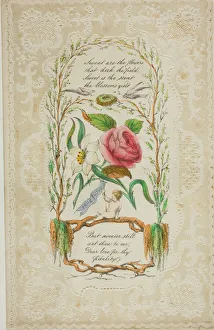 Sweet are the flowers
that deck the field.
Sweet is the scent
the blossoms yield
But sweeter still
art thou to me,
Dear love for thy
fidelity!